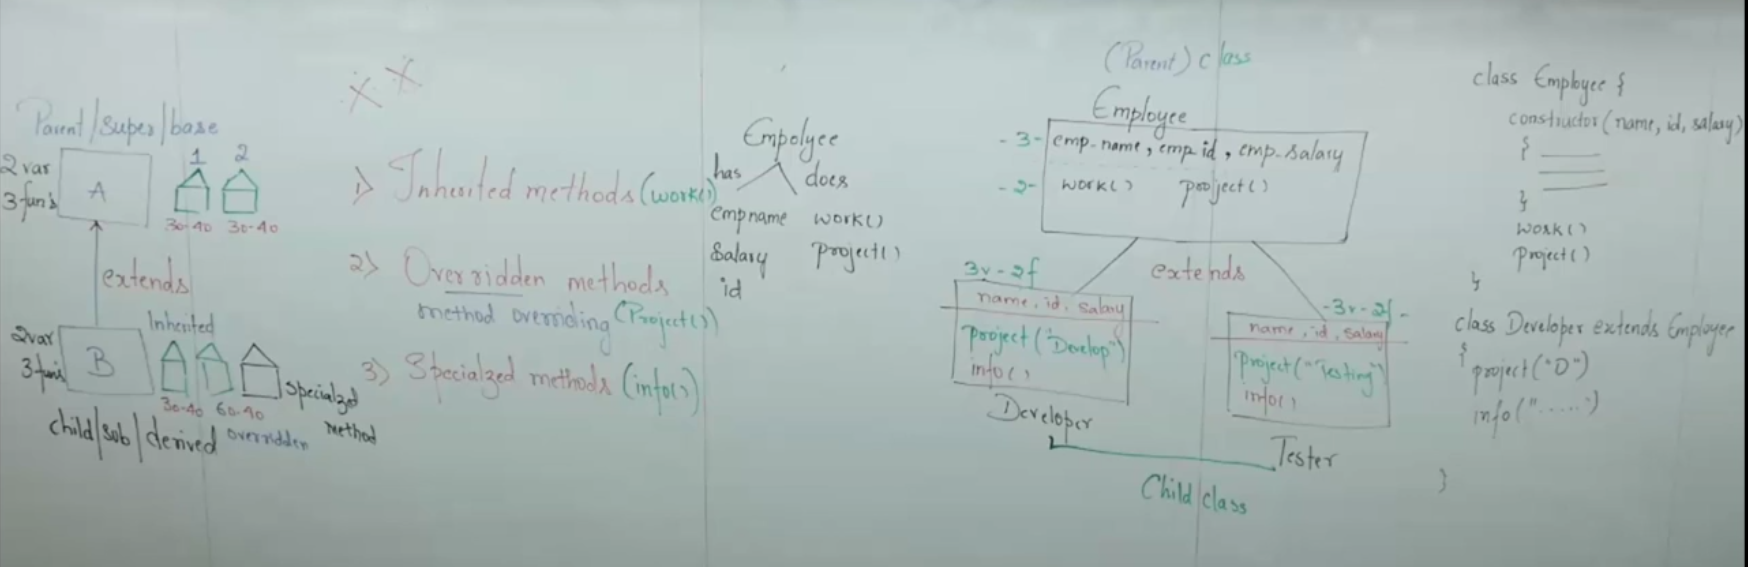 Parent/super/base
2 var
3 fun's
A
1
2
30-40
30-40
extends
2var
3 fun's
B
Inherited
30-40
60-40
overridden
specialized
method
child/sub/derived
1) Inherited methods (work())
2) Overridden methods
method overriding (Project())
3) Specialzed methods (info())
Empolyee
has
does
empname work()
Salary project()
id
(Parent) class
Employee
-3-
emp-name, emp id, emp-salary
-2-
work() project()
extends
3v-2f
name, id, salary
project("Develop")
info()
Developer
-3v-2f-
name, id, salary
project("Testing")
info()
Tester
Child class
class Employee {
constructor(name, id, salary)
{
}
work()
project()
}
class Developer extends Employee
{
project("D")
info(".....")
}